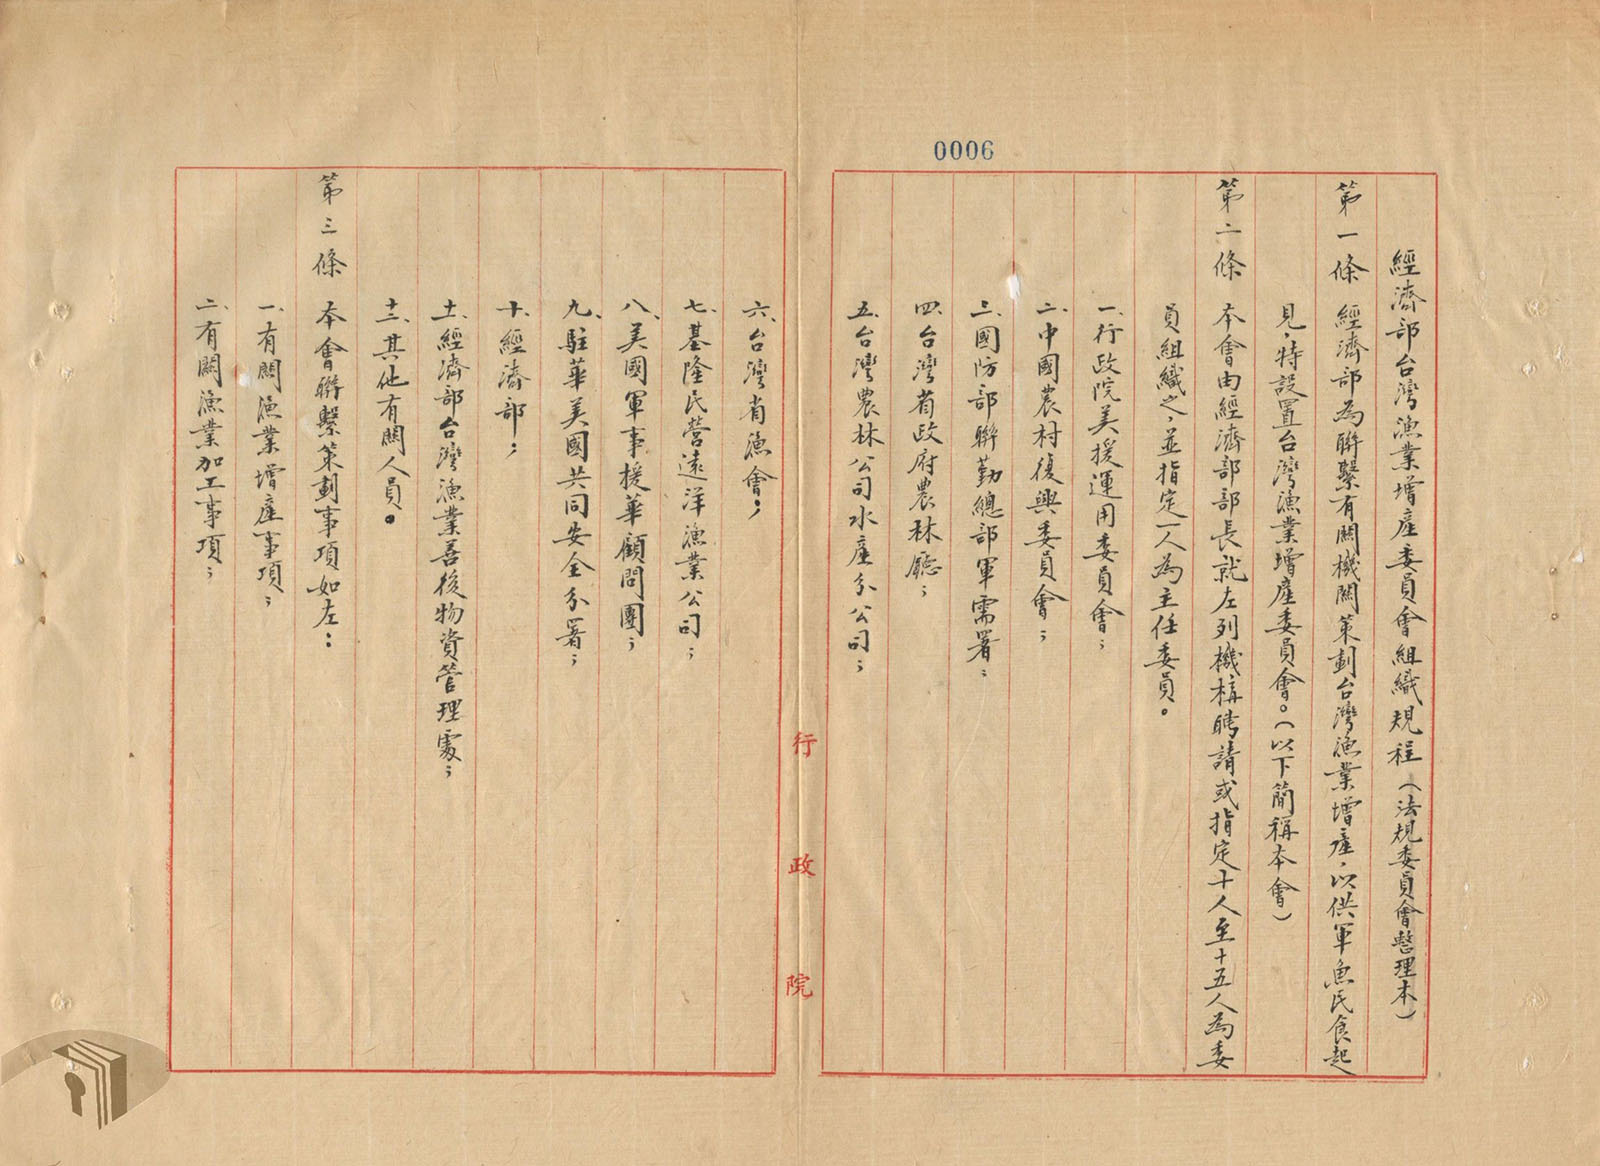 0006
經濟部台灣漁業增產委員會組織規程（法規委員會整理本）
第一條 經濟部為聯繫有關機關策劃台灣漁業增產，以供軍魚民食起
見，特設置台灣漁業增產委員會。（以下簡稱本會）
第二條 本會由經濟部部長就左列機構聘請或指定十人至十五人為委
員組織之，並指定一人為主任委員。
一、行政院美援運用委員會；
二、中國農村復興委員會；
三、國防部聯勤總部軍需署；
四、台灣省政府農林廳；
五、台灣農林公司水產分公司；
行政院
六、台灣省漁會；
七、基隆民營遠洋漁業公司；
八、美國軍事援華顧問團；
九、駐華美國共同安全分署；
十、經濟部；
十一、經濟部台灣漁業善後物資管理處；
十二、其他有關人員。
第三條 本會聯繫策劃事項如左：
一、有關漁業增產事項；
二、有關漁業加工事項；